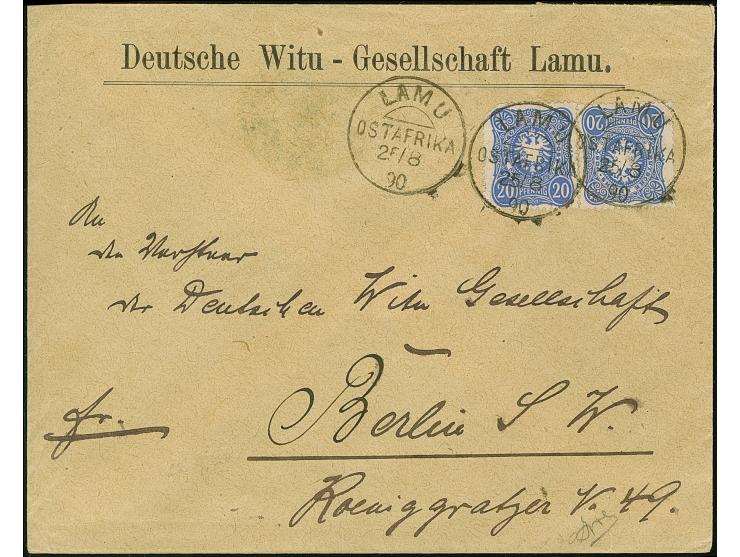 Deutsche Witu - Gesellschaft Lamu.
LAMU
OSTAFRIKA
25/8
90
LAMU
OSTAFRIKA
25/8
90
20 PFENNIG 20
LAMU
OSTAFRIKA
25/8
90
20 PFENNIG 20
An
den Vorstand
der Deutschen Witu Gesellschaft
Berlin S. W.
fr.
Koeniggratzer 49.